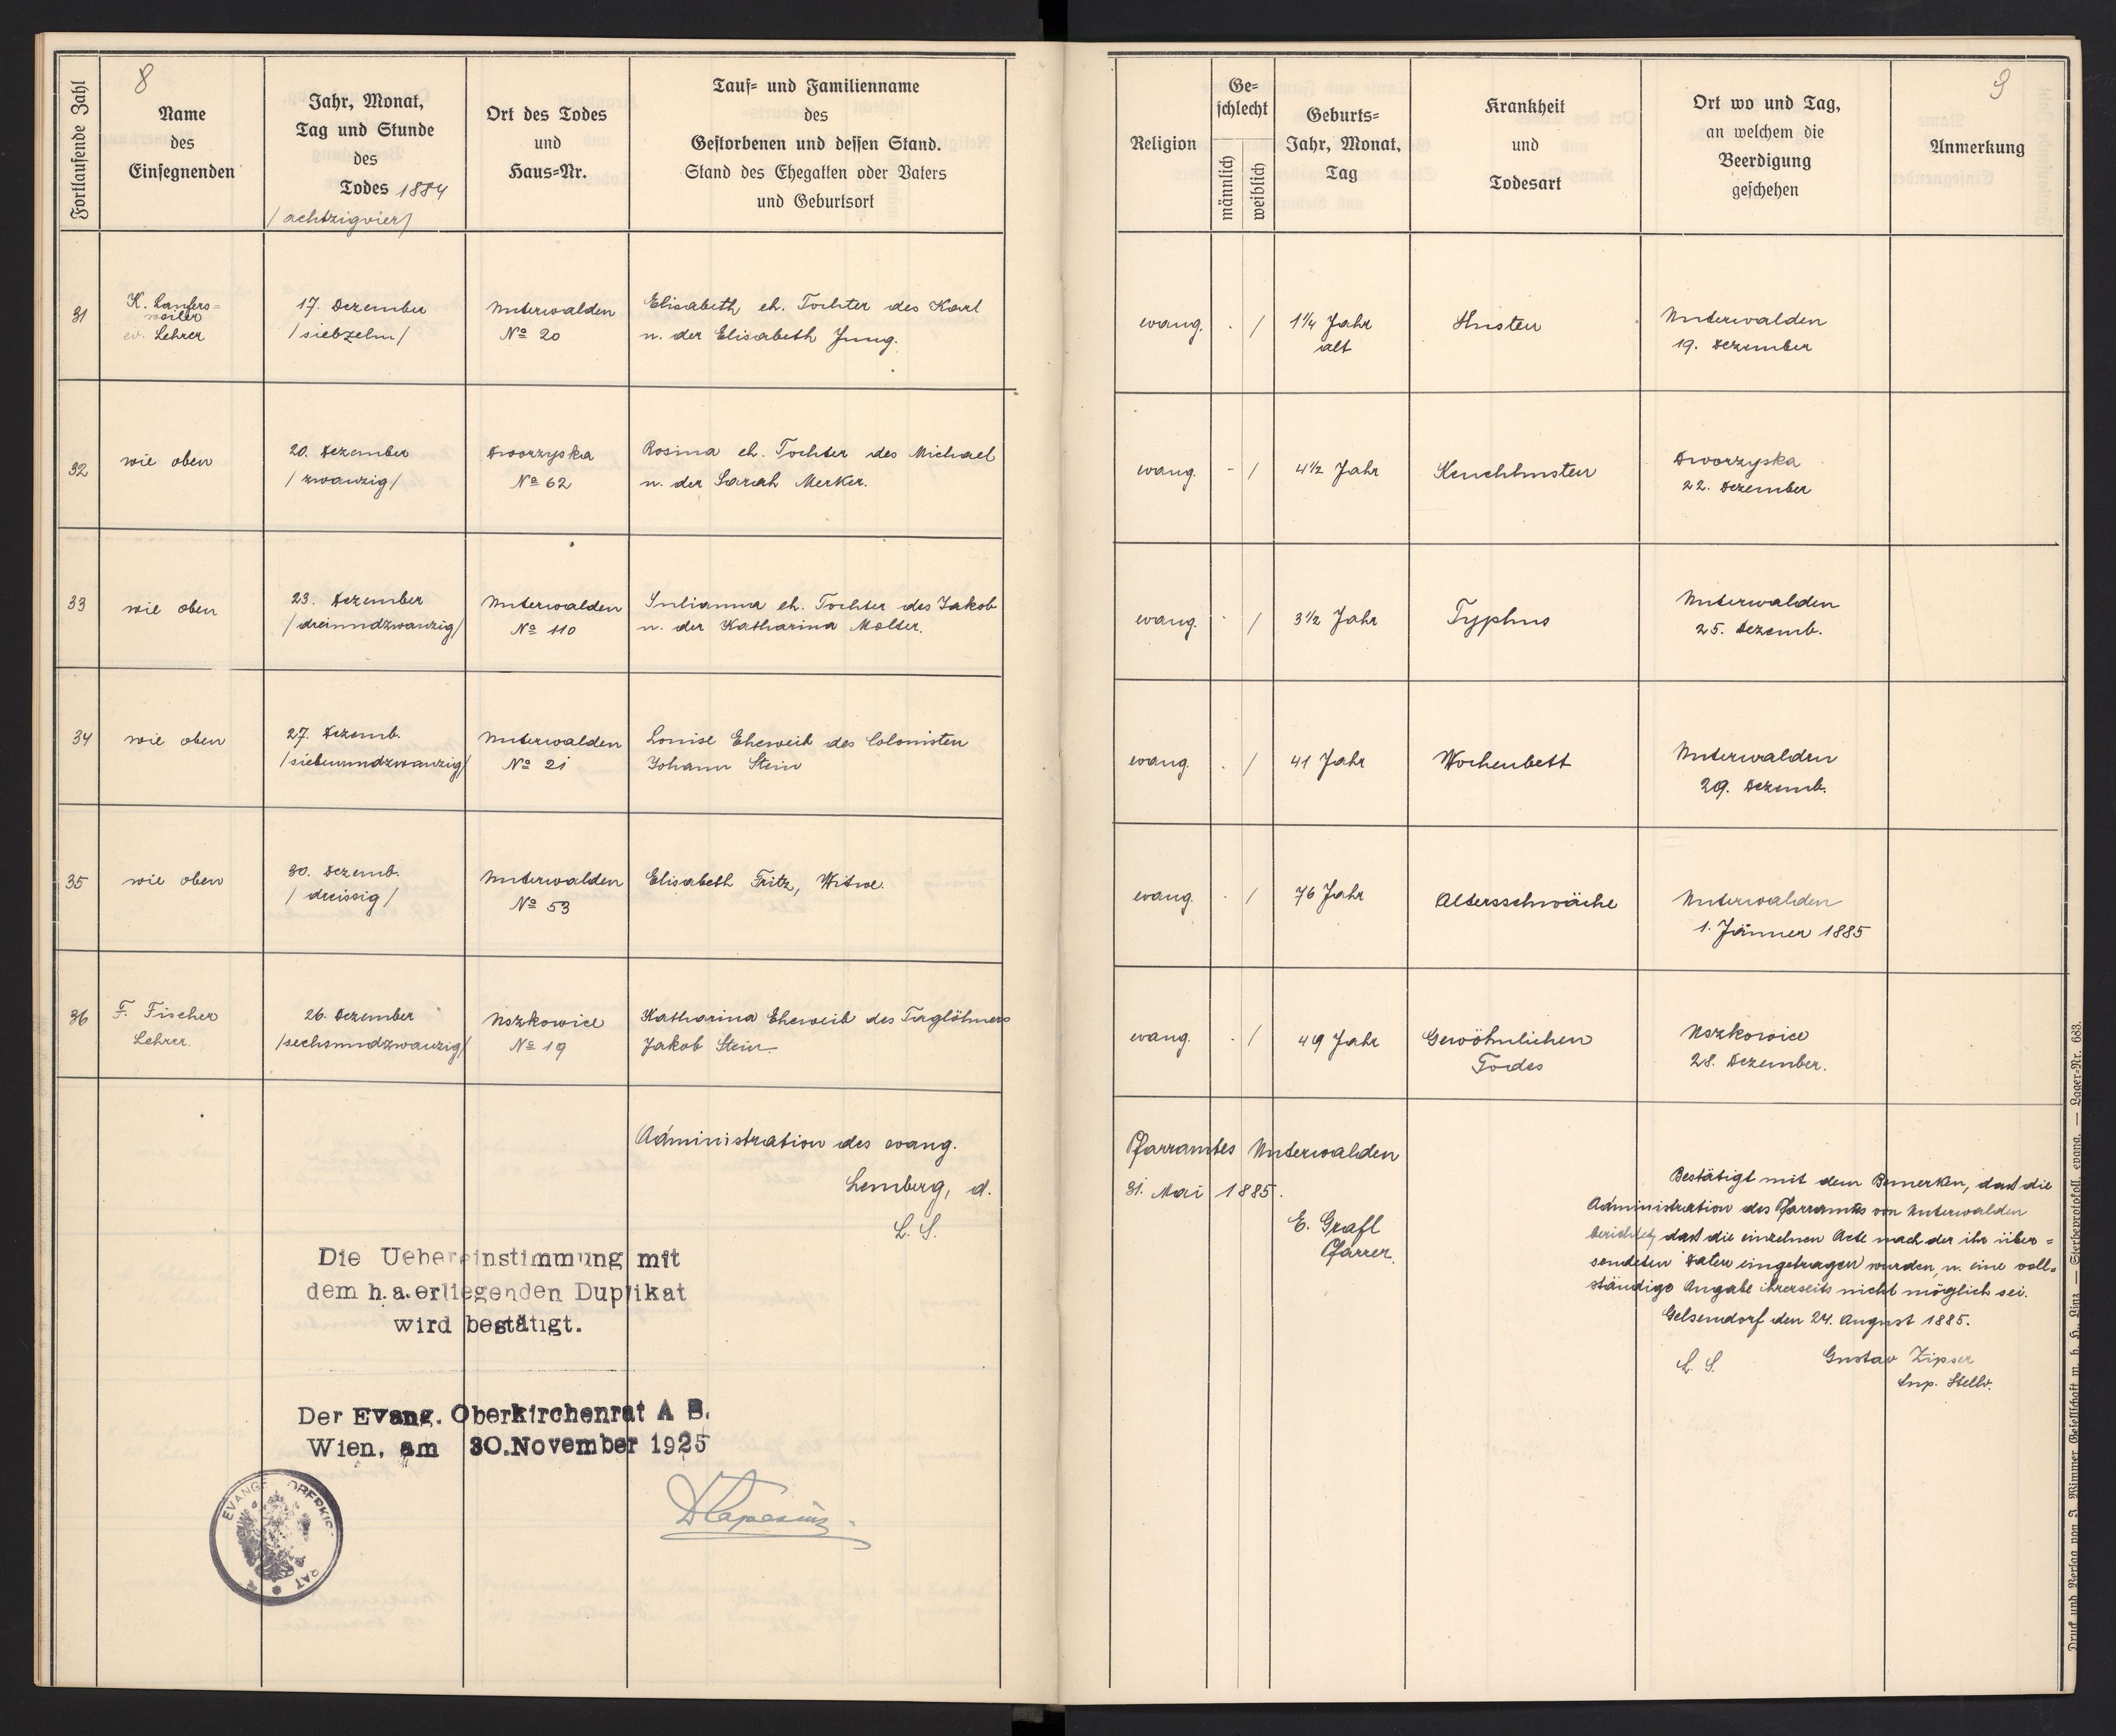 8
Fortlaufende Zahl
Name
des
Einsegnenden
Jahr, Monat,
Tag und Stunde
des
Todes 1884
/achtzigvier/
Ort des Todes
und
Haus=Nr.
Tauf= und Familienname
des
Gestorbenen und dessen Stand.
Stand des Ehegatten oder Vaters
und Geburtsort
Religion
Ge=
schlecht
männlich
weiblich
Geburts=
Jahr, Monat,
Tag
Krankheit
und
Todesart
Ort wo und Tag,
an welchem die
Beerdigung
geschehen
Anmerkung
9
31
K. Lanfers=
weiler
ev. Lehrer
17. Dezember
/siebzehn/
Unterwalden
No 20
Elisabeth eh. Tochter des Karl
u. der Elisabeth Jung.
evang.
. /
1 1/4 Jahr
alt
Husten
Unterwalden
19. Dezember
32
wie oben
20. Dezember
/zwanzig/
Dworzyska
No 62
Rosina eh. Tochter des Michael
u. der Sarah Merker.
evang.
- /
4 1/2 Jahr
Keuchhusten
Dworzyska
22. Dezember
33
wie oben
23. Dezember
/dreiundzwanzig/
Unterwalden
No 110
Julianna eh. Tochter des Jakob
u. der Katharina Molter.
evang.
. /
3 1/2 Jahr
Typhus
Unterwalden
25. Dezemb.
34
wie oben
27. Dezemb.
/siebenundzwanzig/
Unterwalden
No 21
Louise Eheweib des Colonisten
Johann Stein
evang.
. /
41 Jahr
Wochenbett
Unterwalden
29. Dezemb.
35
wie oben
30. Dezemb.
/dreissig/
Unterwalden
No 53
Elisabeth Fritz, Witwe.
evang.
. /
76 Jahr
Altersschwäche
Unterwalden
1. Jänner 1885
36
F. Fischer
Lehrer.
26. Dezember
/sechsundzwanzig/
Uszkowice
No 19
Katharina Eheweib des Taglöhners
Jakob Stein.
evang.
. /
49 Jahr
Gewöhnlichen
Todes
Uszkowice
28. Dezember.
Administration des evang.
Pfarramtes Unterwalden
Lemberg, d.
31. Mai 1885.
L. S.
E. Grafl
Pfarrer.
Bestätigt mit dem Bemerken, dass die
Administration des Pfarramts von Unterwalden
berichtet, dass die einzelnen Acte nach der ihr über=
sendeten Daten eingetragen wurden, u. eine voll=
ständige Angabe ihrerseits nicht möglich sei.
Gelsendorf den 24. August 1885.
L. S.
Gustav Zipser
Sup. Stellv.
Die Uebereinstimmung mit
dem h.a. erliegenden Duplikat
wird bestätigt.
Der Evang. Oberkirchenrat A B.
Wien, am 30. November 1925
Druck und Verlag von J. Wimmer Gesellschaft m. b. H., Linz. — Sterbeprotokoll, evang. — Lager=Nr. 683.